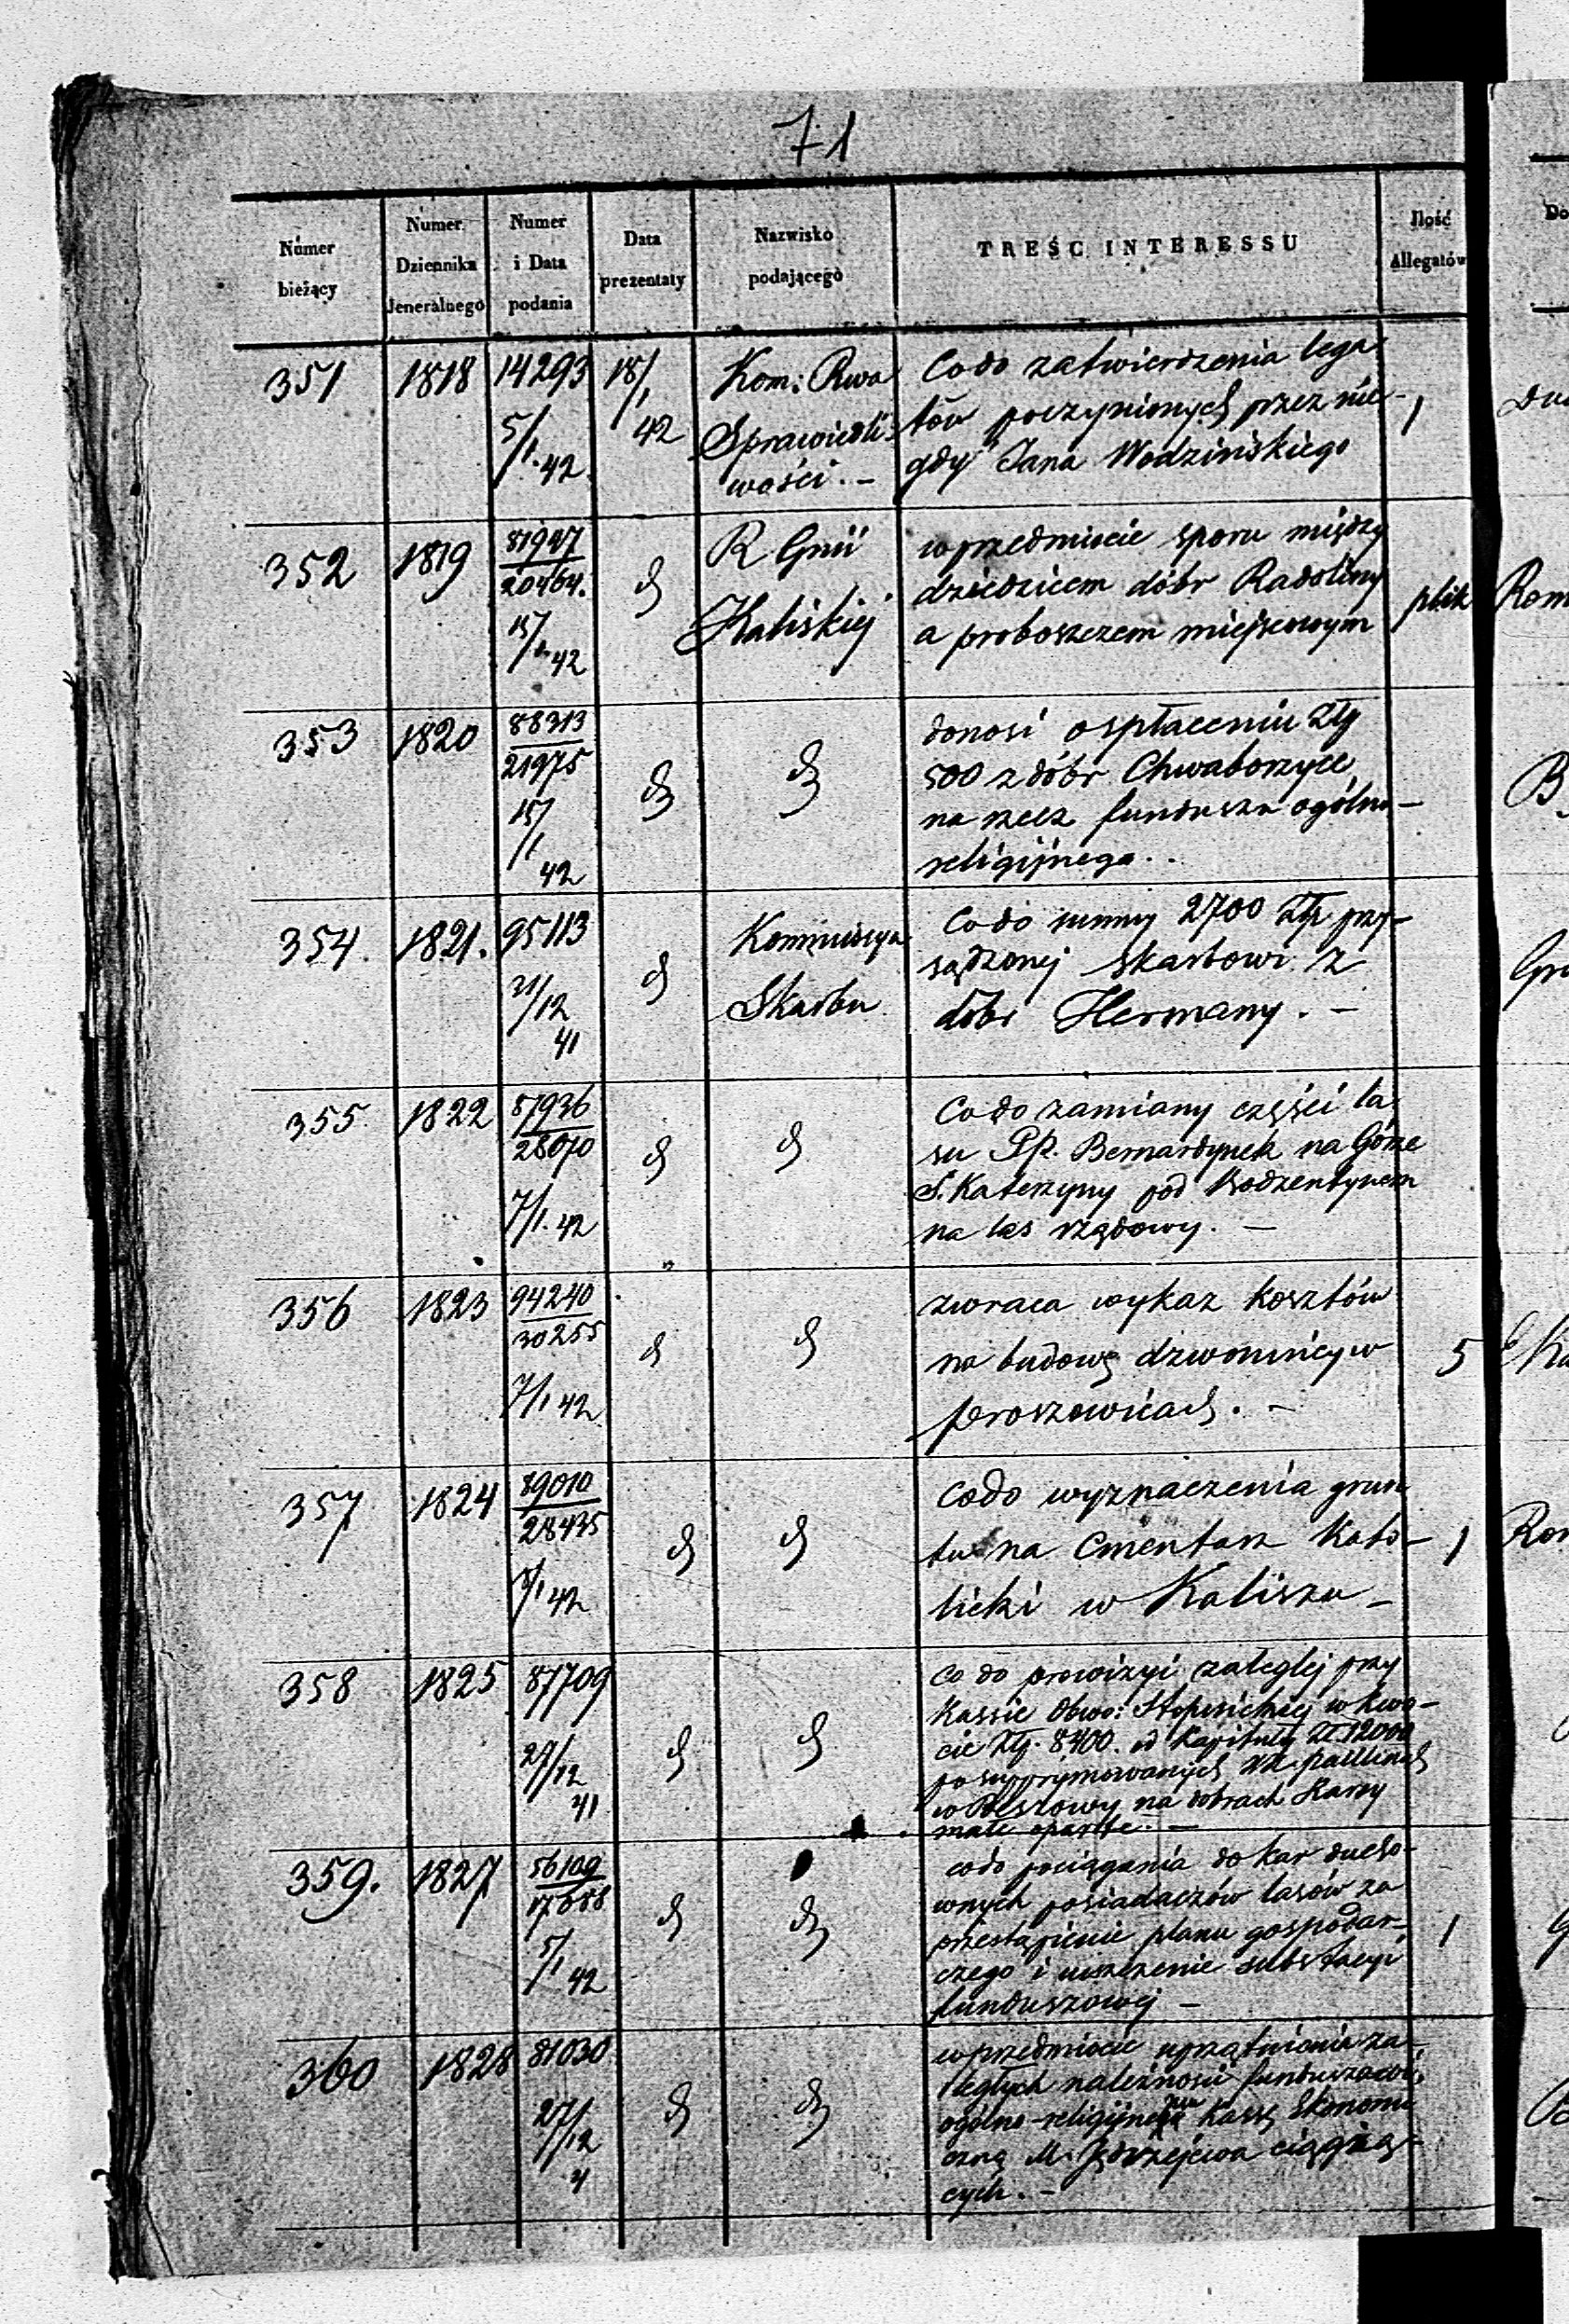 71
Numer bieżący
Numer Dziennika Jeneralnego
Numer i Data podania
Data prezentaty
Nazwisko podającego
TREŚĆ INTERESSU
Ilość Allegatów
351 1818 14293 5/1. 42 18/1 42
Kom: Rwa
Sprawiedli-
wości. –
Co do zatwierdzenia lega
tów poczynionych przez nie-
gdy Jana Wodzińskiego
1
352 1819 81947/20464. 15/1 42 d
R Gnii
Kaliskiej
w przedmiocie sporu między
dziedzicem dóbr Radoliny
a proboszczem miejscowym
plik
353 1820 88313/21975 15/1 42 d d
donosi o spłaceniu Złp
500 z dóbr Chwaborzyce
na rzecz funduszu ogólno-
religijnego. .
354. 1821. 95113 31/12 41 d
Kommissya
Skarbu
Co do summy 2700 Złp. przy-
sądzonej skarbowi z
dóbr Hermany. –
355 1822 87936/28070 7/1. 42 d d
Co do zamiany części la
su Pp. Bernardynek na Górze
S. Katerzyny pod Bodzentynem
na las rządowy. –
356 1823 94240/30255 7/1 42 d d
zwraca wykaz kosztów
na budowę dzwonnicy w
Proszowicach. –
5
357 1824 89010/28435 8/1 42 d d
co do wyznaczenia grun
tu na Cmentarz Kato-
licki w Kaliszu –
1
358 1825 87709 27/12 41 d d
co do prowizyi zaległej przy
Kassie Obwo: Stopnickiej w kwo-
cie Złp. 8400. od Kapituły Zł 12000
po supprymowanych XX. Paulinach
w Beszowy na dobrach
małe oparte. –
359. 1827 56109/17688 5/1 42 d d
co do pociągania do kar ducho-
wnych posiadaczów lasów za
przestąpienie planu gospodar-
czego i niszczenie substancyi
funduszowej –
1
360 1828 81030 27/12 41 d d
w przedmiocie uprzątnienia za-
ległych należności funduszowi
ogólno-religijnemu Kassę Ekonomi
czną M. Jędrzejewa ciążą-
cych. –